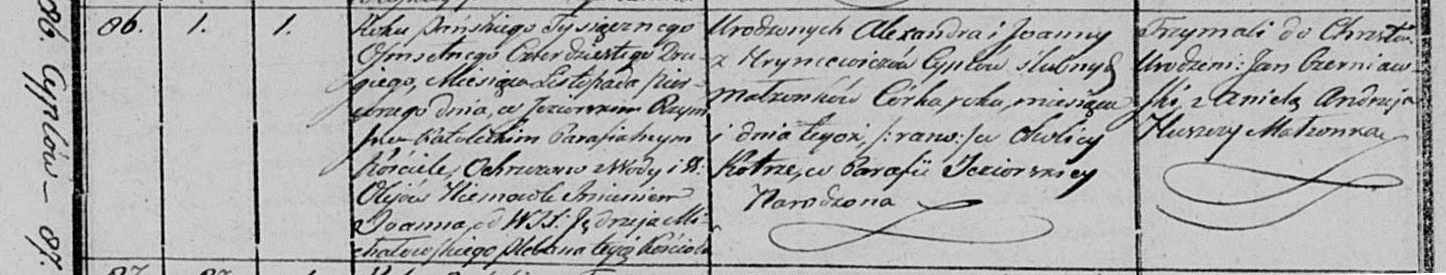 86. Cyplów — 87.
86. 1. 1.
Roku Pańskiego Tysiącznego
Ośmsetnego Czterdziestego Dru-
giego, Miesiąca Listopada pier-
wszego dnia, w Jeziorskim Rzym
sko Katolickim Parafialnym
Kościele, Ochrzczono z Wody i S:
Olejów Niemowle Imieniem
Joanna, od WJX: Jędrzeja Mi-
chałowskiego plebana tegoż Kościoła
Urodzonych Alexandra i Joanny
z Hryncewiczów Cyplów ślubnych
Małżonków Córka, roku, miesiąca
i dnia tegoż, /: rano :/ w Okolicy
Kotrze, w Parafii Jeziorskiey
Narodzona
Trzymali do Chrztu
Urodzeni: Jan Czerniaw-
ski, z Anielą Andrzeja
Małżonką
87. 87. 1.